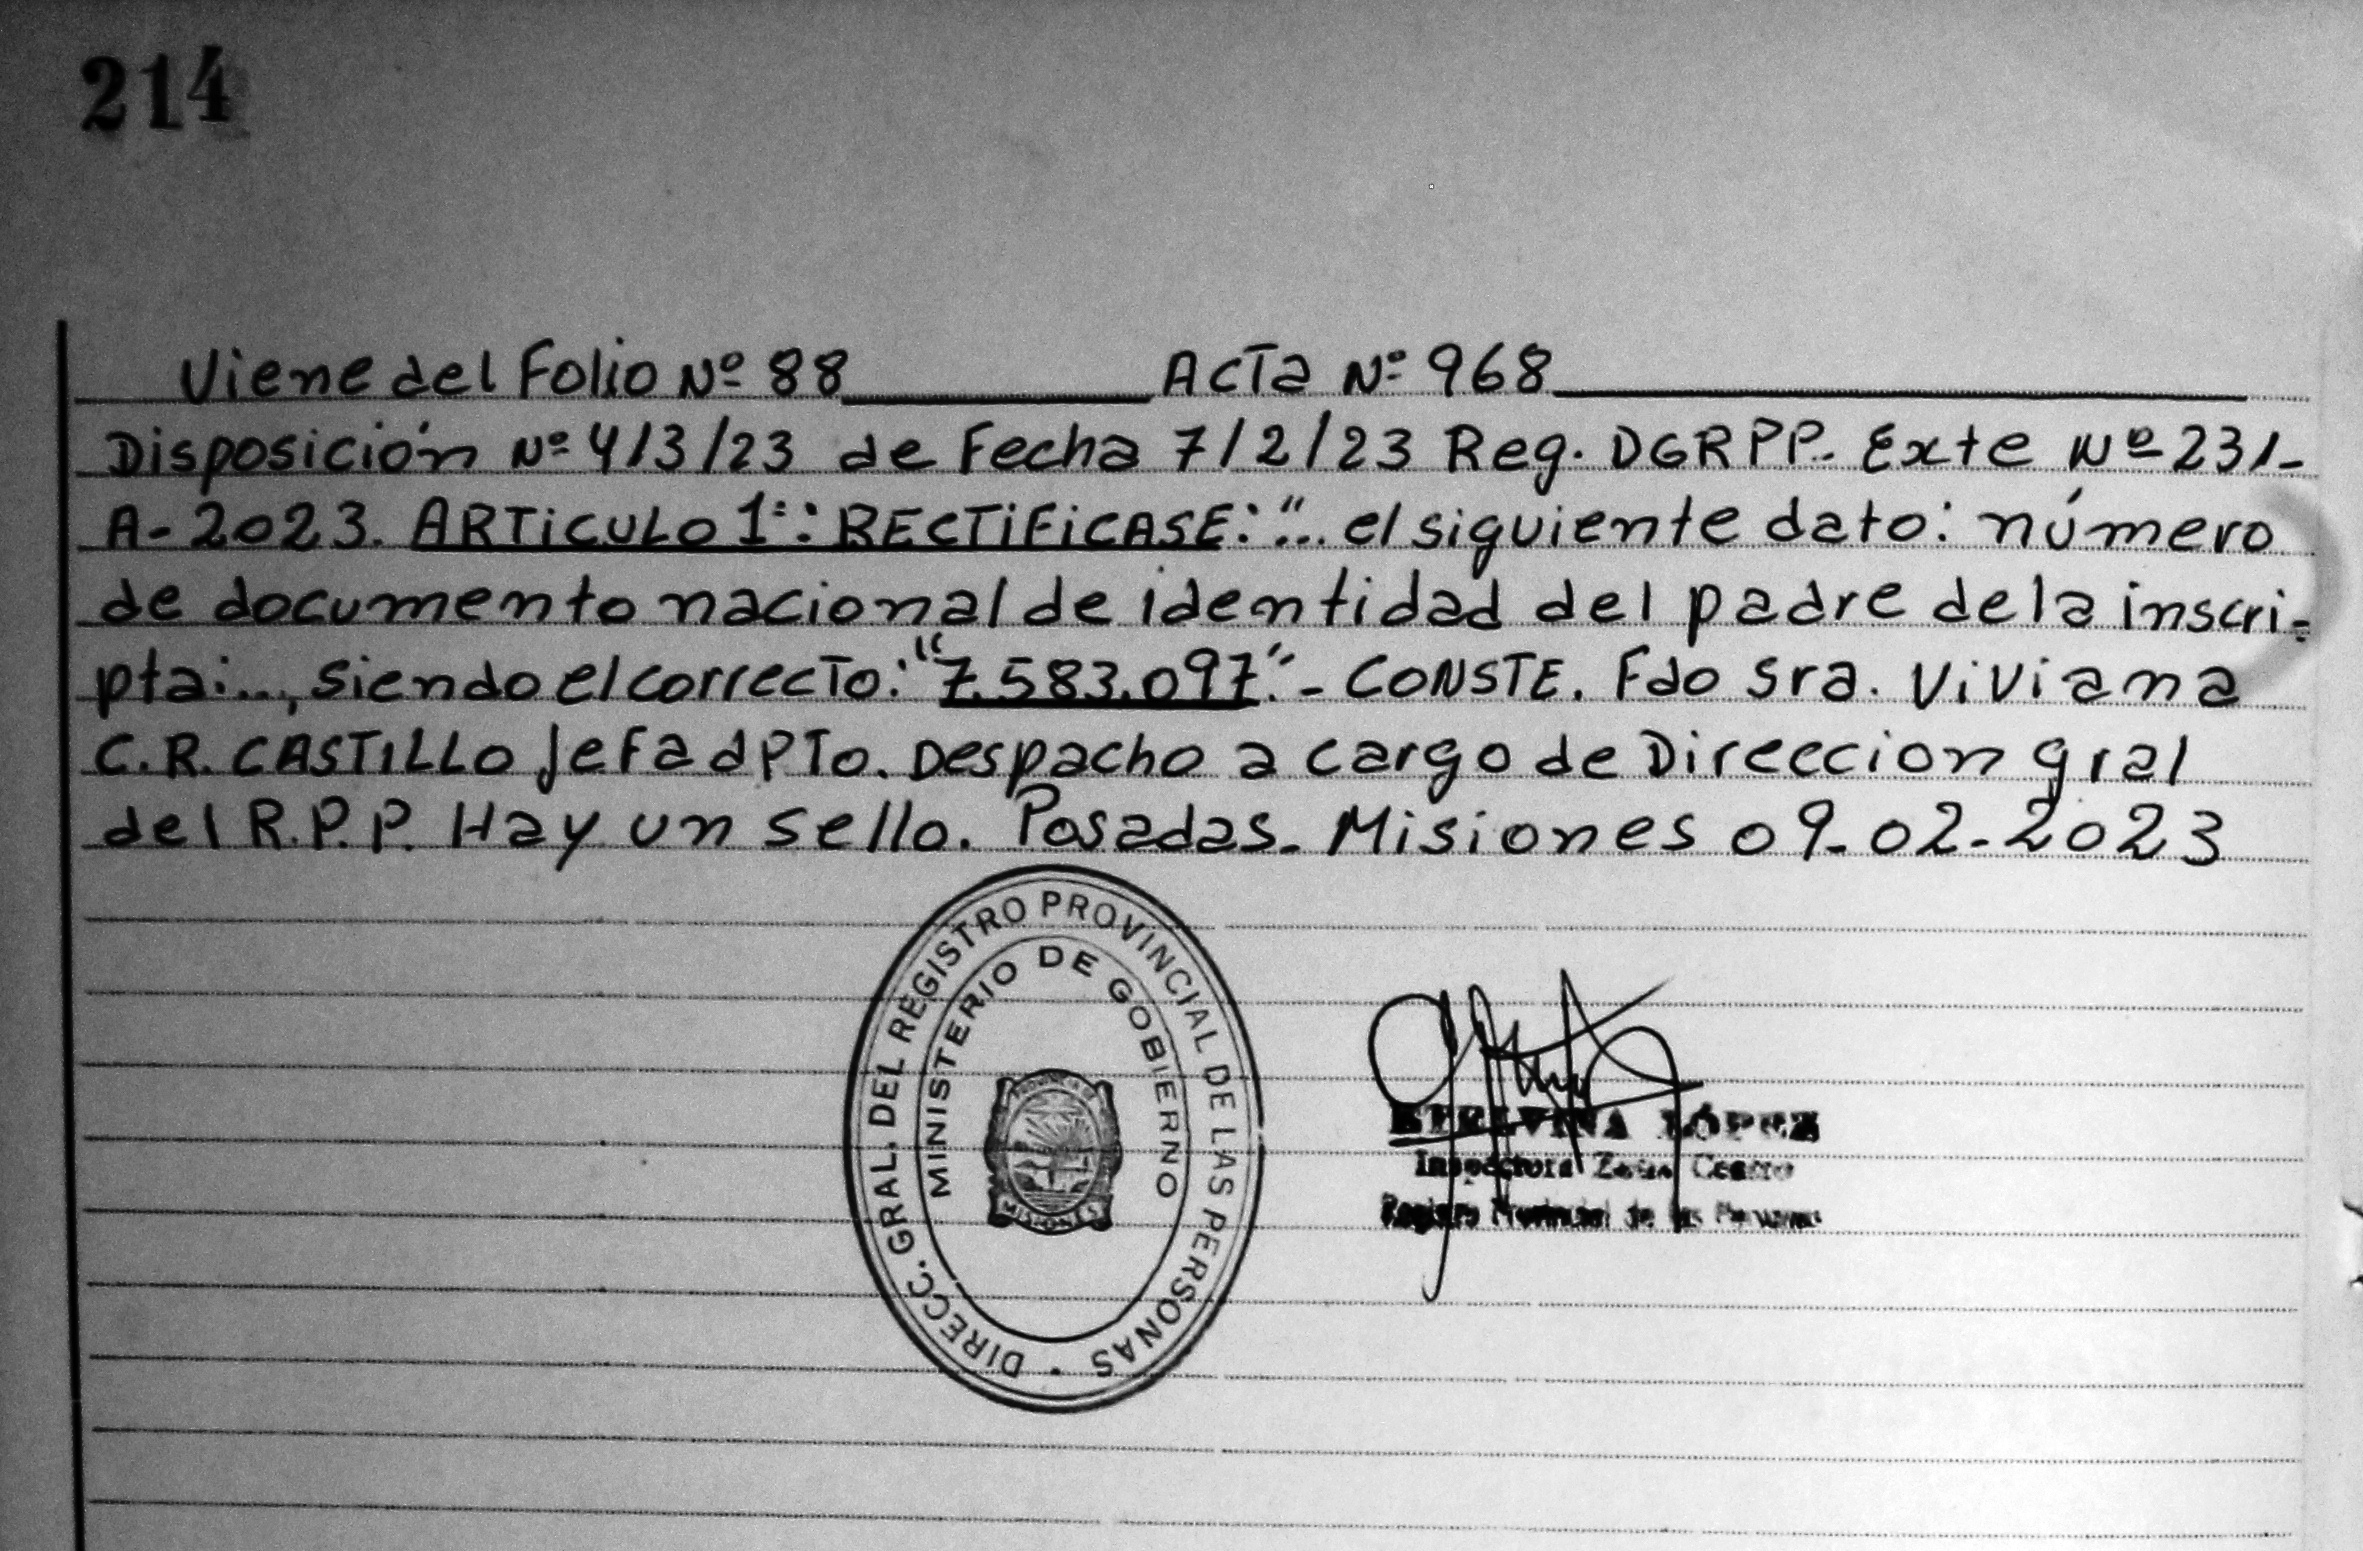 214
Viene del Folio Nº 88 Acta Nº 968
Disposición Nº 413/23 de Fecha 7/2/23 Reg. DGRPP. Exte Nº 231-
A-2023. ARTiCULO 1º: RECTiFiCASE: "... el siguiente dato: número
de documento nacional de identidad del padre de la inscri-
pta:..., siendo el correcto: "7.583.097."- CONSTE. Fdo Sra. Viviana
C.R. CASTILLO Jefa dPTo. Despacho a cargo de Direccion gral
del R.P.P. Hay un sello. Posadas. Misiones 09-02-2023
DIRECC. GRAL. DEL REGISTRO PROVINCIAL DE LAS PERSONAS
MINISTERIO DE GOBIERNO
MISIONES
LÓPEZ
Inspectora Zona Centro
Registro Provincial de las Personas